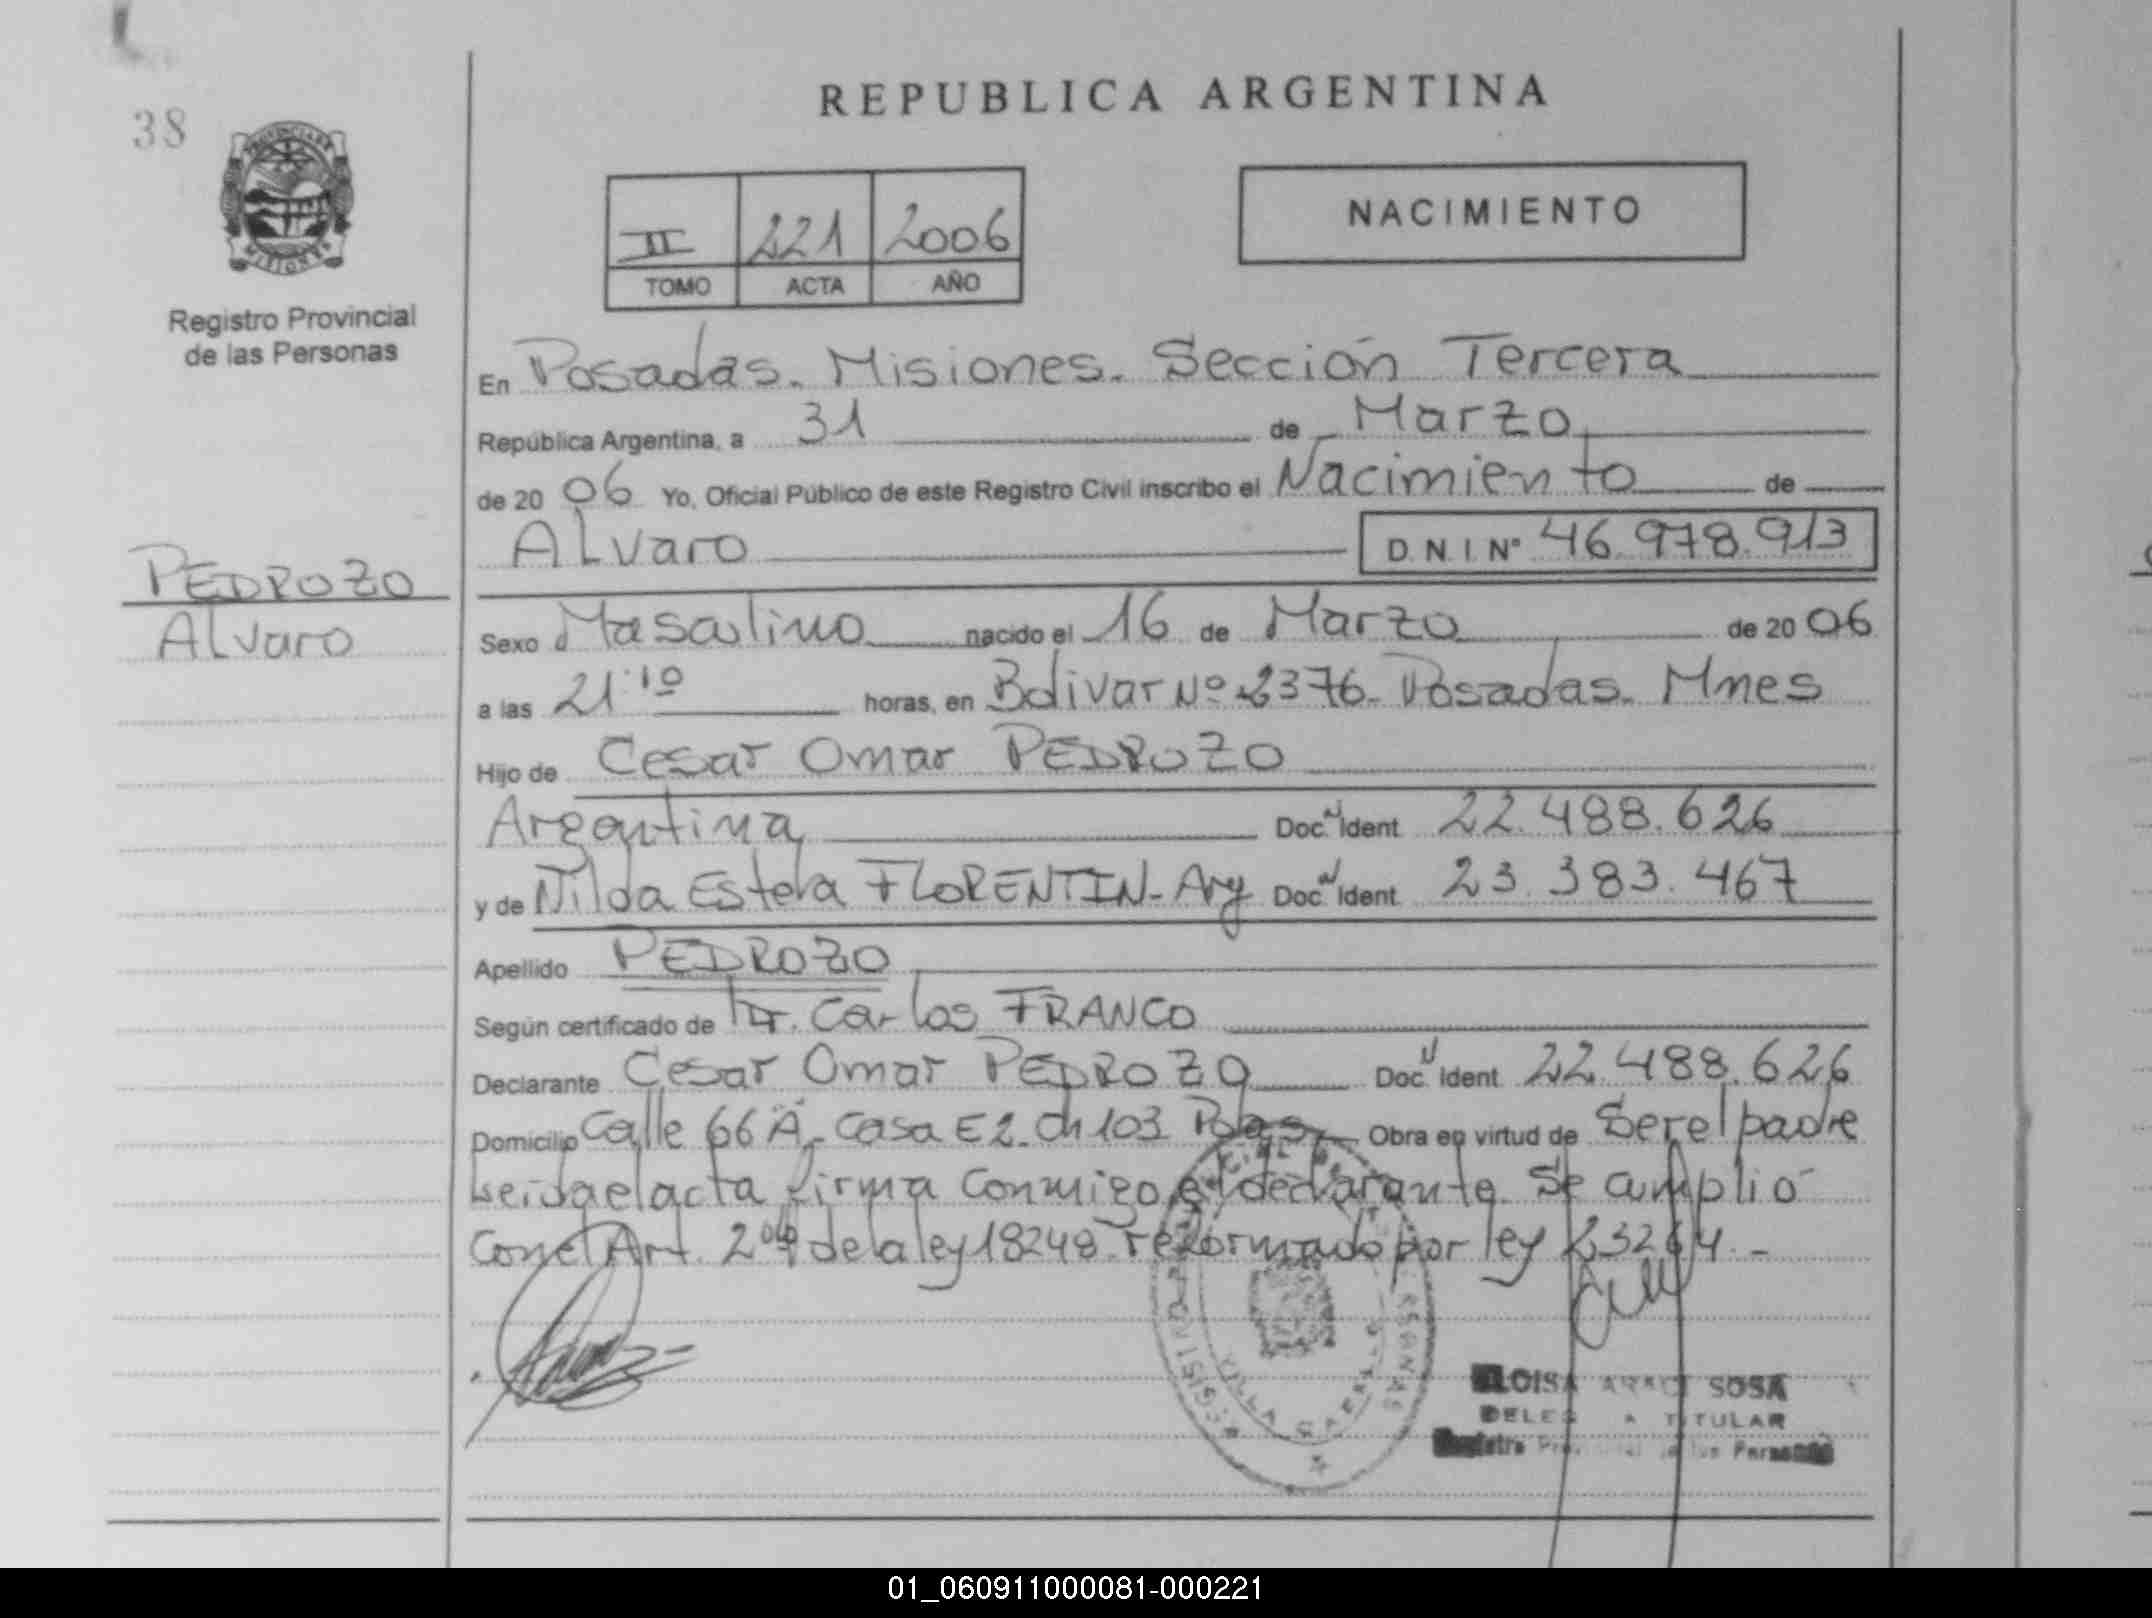 REPUBLICA ARGENTINA
38
PROVINCIA DE
MISIONES
Registro Provincial
de las Personas
II 221 2006
TOMO ACTA AÑO
NACIMIENTO
En Posadas. Misiones. Sección Tercera
República Argentina, a 31 de Marzo
de 20 06 Yo, Oficial Público de este Registro Civil inscribo el Nacimiento de
Alvaro D.N.I. Nº 46.978.913
PEDROZO
Alvaro
Sexo Masculino nacido el 16 de Marzo de 20 06
a las 21:10 horas, en Bolivar Nº 2376. Posadas. Mnes
Hijo de Cesar Omar PEDROZO
Argentina Doc. N Ident 22.488.626
y de Nilda Estela FLORENTIN - Arg Doc. N Ident. 23.383.467
Apellido PEDROZO
Según certificado de Dr. Carlos FRANCO
Declarante Cesar Omar PEDROZO Doc. N Ident 22.488.626
Domicilio Calle 66 A. Casa E2. Ch 103 Pdas Obra en virtud de Ser el padre
Leida el acta firma conmigo el declarante. Se cumplió
con el Art. 2 de la ley 18248 reformado por ley 23264.-
REGISTRO
VILLA
ELOISA ARACI SOSA
DELEGADA TITULAR
Registro Provincial de las Personas
01_060911000081-000221